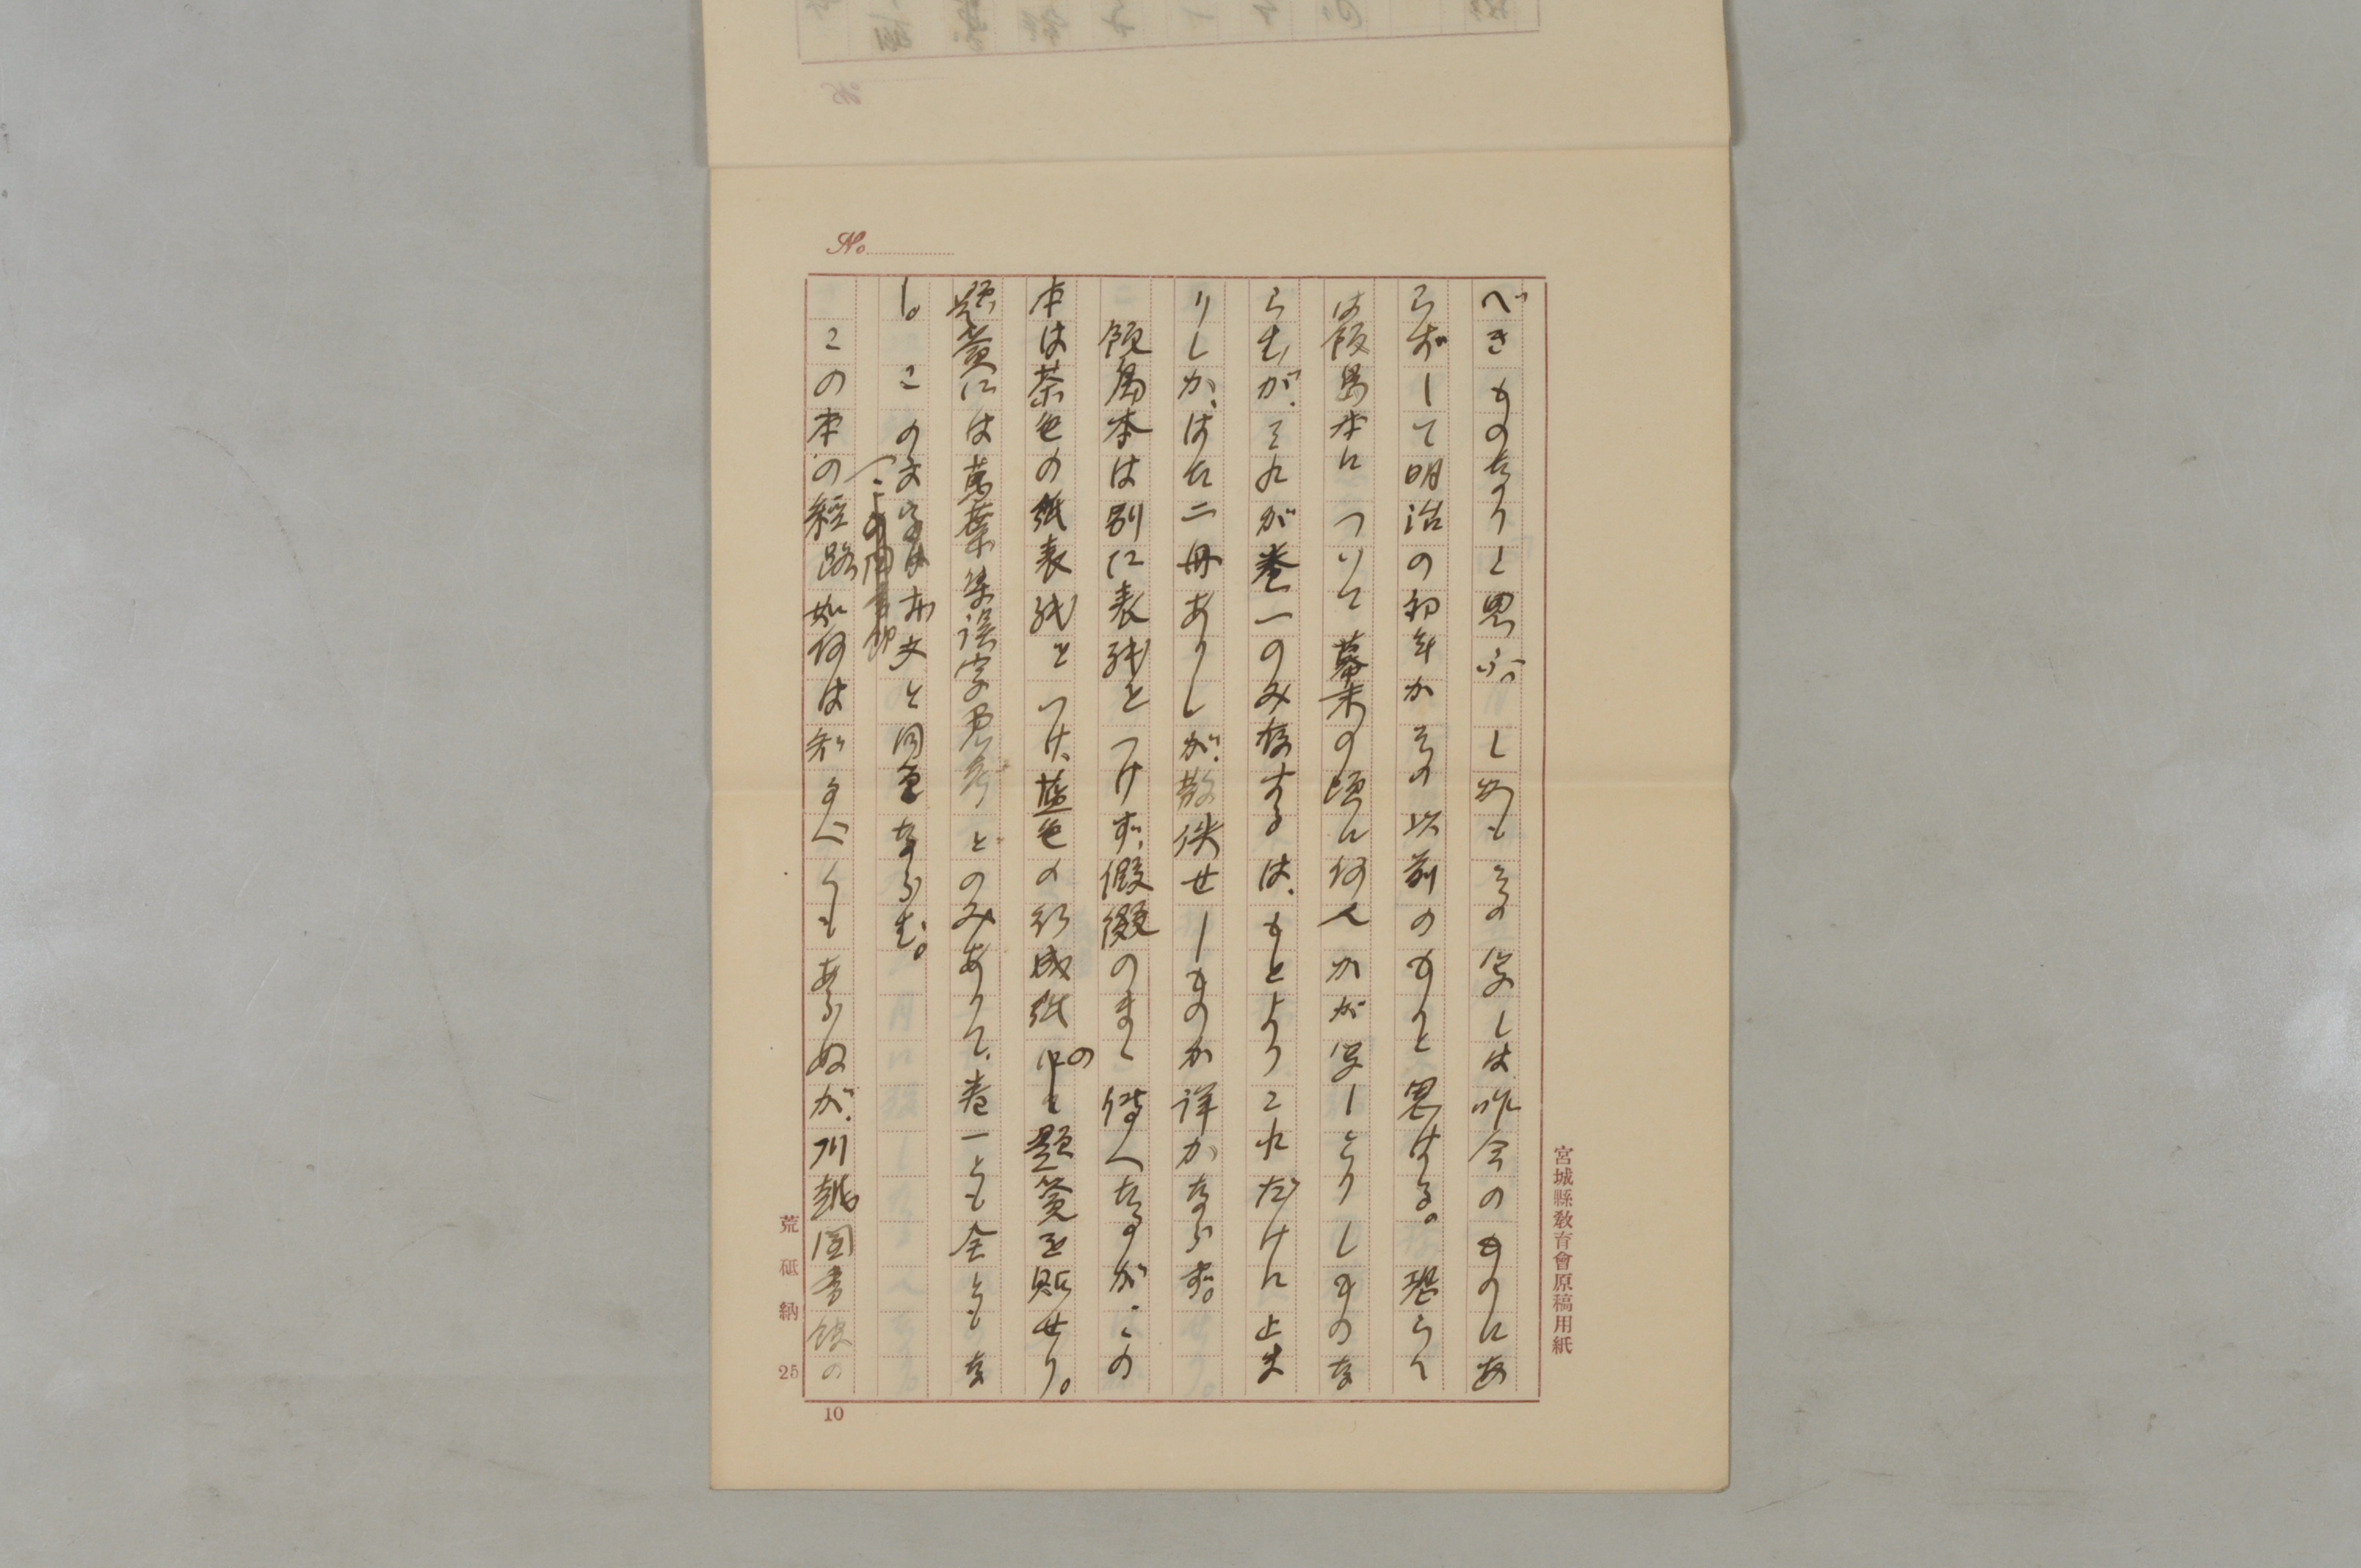 べきものなりと思ふ。しかもその写しは昨今のものにあ
らずして明治の初年かその以前のものと思はる。恐らく
は飯島本について幕末の頃に何人かが写しとりしものな
らむが、それが巻一のみ存するは、もとよりこれだけに止ま
りしか、はた二冊ありしが、散佚せしものか詳かならず。
飯島本は別に表紙をつけず、假綴のまゝ傳へたるが、この
本は茶色の紙表紙をつけ、藍色の行成紙の題簽を貼せり。
題簽には萬葉集誤字愚考とのみありて、巻一とも全ともな
し。この文字は本文と同筆ならむ。
この本の経路如何は知るべくもあらぬが、川越図書館の
No.
宮城縣教育會原稿用紙
荒砥納
25
10